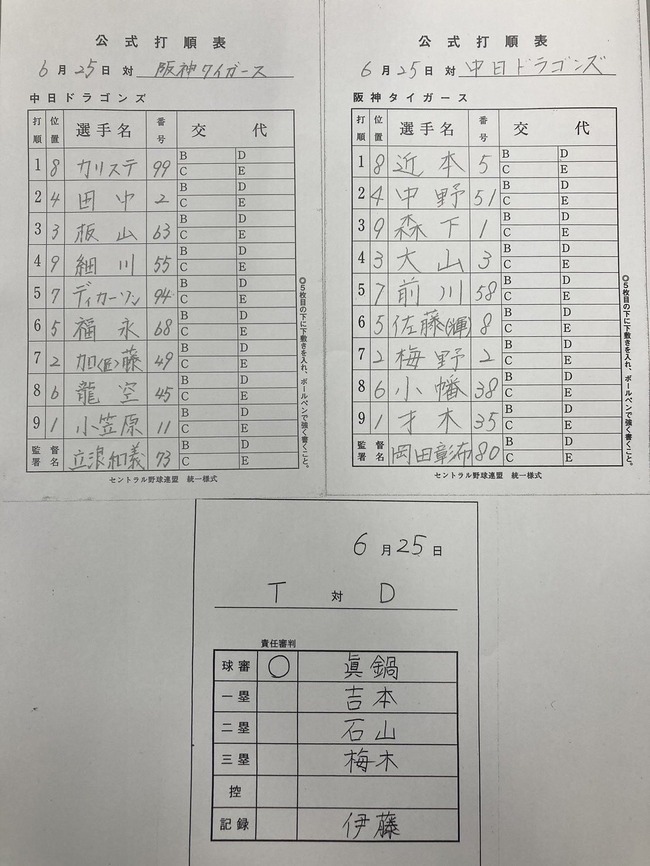 公式打順表
6月25日対 阪神タイガース
中日ドラゴンズ
打順 位置 選手名 番号 交代
1 8 カリステ 99 B D C E
2 4 田中 2 B D C E
3 3 板山 63 B D C E
4 9 細川 55 B D C E
5 7 ディカーソン 94 B D C E
6 5 福永 68 B D C E
7 2 加(匠)藤 49 B D C E
8 6 龍空 45 B D C E
9 1 小笠原 11 B D C E
監督署名 立浪和義 73 B D C E
◎5枚目の下に下敷きを入れ、ボールペンで強く書くこと。
セントラル野球連盟 統一様式
公式打順表
6月25日対 中日ドラゴンズ
阪神タイガース
打順 位置 選手名 番号 交代
1 8 近本 5 B D C E
2 4 中野 51 B D C E
3 9 森下 1 B D C E
4 3 大山 3 B D C E
5 7 前川 58 B D C E
6 5 佐藤(輝) 8 B D C E
7 2 梅野 2 B D C E
8 6 小幡 38 B D C E
9 1 才木 35 B D C E
監督署名 岡田彰布 80 B D C E
◎5枚目の下に下敷きを入れ、ボールペンで強く書くこと。
セントラル野球連盟 統一様式
6月25日
T 対 D
責任審判
球審 ○ 眞鍋
一塁 吉本
二塁 石山
三塁 梅木
控
記録 伊藤